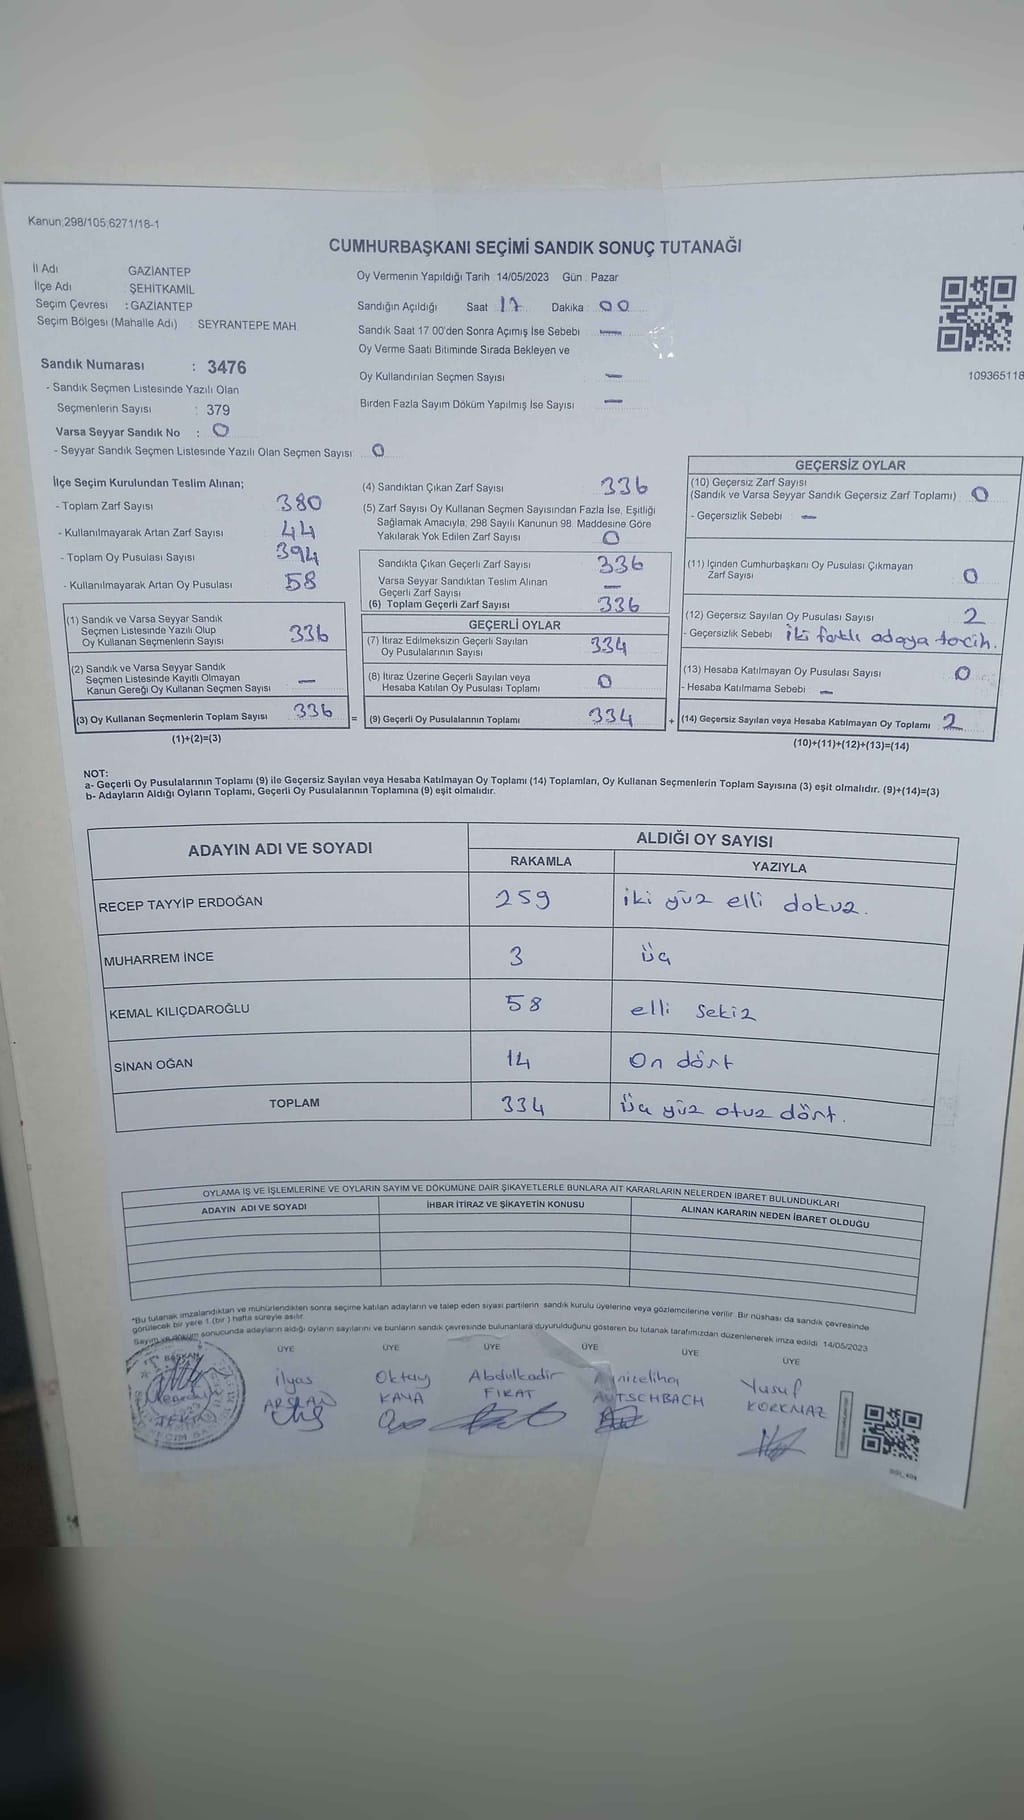 Kanun;298/105;6271/18-1
CUMHURBAŞKANI SEÇİMİ SANDIK SONUÇ TUTANAĞI
İl Adı GAZİANTEP
İlçe Adı ŞEHİTKAMİL
Seçim Çevresi : GAZİANTEP
Seçim Bölgesi (Mahalle Adı) SEYRANTEPE MAH
Oy Vermenin Yapıldığı Tarih 14/05/2023 Gün Pazar
Sandığın Açıldığı Saat 17 Dakika 00
Sandık Saat 17 00'den Sonra Açımış İse Sebebi —
Oy Verme Saati Bitiminde Sırada Bekleyen ve
Oy Kullandırılan Seçmen Sayısı —
Birden Fazla Sayım Döküm Yapılmış İse Sayısı —
109365118
Sandık Numarası : 3476
- Sandık Seçmen Listesinde Yazılı Olan
Seçmenlerin Sayısı : 379
Varsa Seyyar Sandık No : 0
- Seyyar Sandık Seçmen Listesinde Yazılı Olan Seçmen Sayısı 0
İlçe Seçim Kurulundan Teslim Alınan;
- Toplam Zarf Sayısı 380
- Kullanılmayarak Artan Zarf Sayısı 44
- Toplam Oy Pusulası Sayısı 394
- Kullanılmayarak Artan Oy Pusulası 58
(1) Sandık ve Varsa Seyyar Sandık
Seçmen Listesinde Yazılı Olup
Oy Kullanan Seçmenlerin Sayısı 336
(2) Sandık ve Varsa Seyyar Sandık
Seçmen Listesinde Kayıtlı Olmayan
Kanun Gereği Oy Kullanan Seçmen Sayısı —
(3) Oy Kullanan Seçmenlerin Toplam Sayısı 336 =
(1)+(2)=(3)
(4) Sandıktan Çıkan Zarf Sayısı 336
(5) Zarf Sayısı Oy Kullanan Seçmen Sayısından Fazla İse, Eşitliği
Sağlamak Amacıyla, 298 Sayılı Kanunun 98. Maddesine Göre
Yakılarak Yok Edilen Zarf Sayısı 0
Sandıkta Çıkan Geçerli Zarf Sayısı 336
Varsa Seyyar Sandıktan Teslim Alınan
Geçerli Zarf Sayısı —
(6) Toplam Geçerli Zarf Sayısı 336
GEÇERLİ OYLAR
(7) İtiraz Edilmeksizin Geçerli Sayılan
Oy Pusulalarının Sayısı 334
(8) İtiraz Üzerine Geçerli Sayılan veya
Hesaba Katılan Oy Pusulası Toplamı 0
(9) Geçerli Oy Pusulalarının Toplamı 334 +
GEÇERSİZ OYLAR
(10) Geçersiz Zarf Sayısı
(Sandık ve Varsa Seyyar Sandık Geçersiz Zarf Toplamı) 0
- Geçersizlik Sebebi —
(11) İçinden Cumhurbaşkanı Oy Pusulası Çıkmayan
Zarf Sayısı 0
(12) Geçersiz Sayılan Oy Pusulası Sayısı 2
- Geçersizlik Sebebi iki farklı adaya tercih.
(13) Hesaba Katılmayan Oy Pusulası Sayısı 0
- Hesaba Katılmama Sebebi —
(14) Geçersiz Sayılan veya Hesaba Katılmayan Oy Toplamı 2
(10)+(11)+(12)+(13)=(14)
NOT:
a- Geçerli Oy Pusulalarının Toplamı (9) ile Geçersiz Sayılan veya Hesaba Katılmayan Oy Toplamı (14) Toplamları, Oy Kullanan Seçmenlerin Toplam Sayısına (3) eşit olmalıdır. (9)+(14)=(3)
b- Adayların Aldığı Oyların Toplamı, Geçerli Oy Pusulalarının Toplamına (9) eşit olmalıdır.
ADAYIN ADI VE SOYADI ALDIĞI OY SAYISI
RAKAMLA YAZIYLA
RECEP TAYYİP ERDOĞAN 259 iki yüz elli dokuz.
MUHARREM İNCE 3 üç
KEMAL KILIÇDAROĞLU 58 elli sekiz
SİNAN OĞAN 14 On dört
TOPLAM 334 üç yüz otuz dört.
OYLAMA İŞ VE İŞLEMLERİNE VE OYLARIN SAYIM VE DÖKÜMÜNE DAİR ŞİKAYETLERLE BUNLARA AİT KARARLARIN NELERDEN İBARET BULUNDUKLARI
ADAYIN ADI VE SOYADI İHBAR İTİRAZ VE ŞİKAYETİN KONUSU ALINAN KARARIN NEDEN İBARET OLDUĞU
*Bu tutanak imzalandıktan ve mühürlendikten sonra seçime katılan adayların ve talep eden siyasi partilerin sandık kurulu üyelerine veya gözlemcilerine verilir. Bir nüshası da sandık çevresinde
görülecek bir yere 1 (bir) hafta süreyle asılır.
Sayım ve döküm sonucunda adayların aldığı oyların sayılarını ve bunların sandık çevresinde bulunanlara duyurulduğunu gösteren bu tutanak tarafımızdan düzenlenerek imza edildi. 14/05/2023
BAŞKAN ÜYE ÜYE ÜYE ÜYE ÜYE ÜYE
ilyas Oktay Abdulkadir Yusuf
ARSLAN KAYA FIRAT AUTSCHBACH KORKMAZ